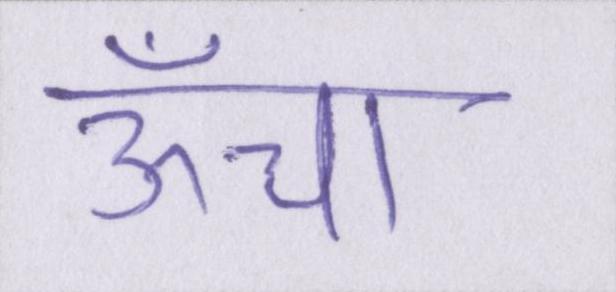 ऊँचा